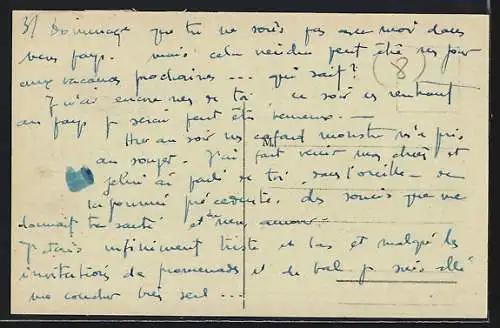 3/ Dommage que tu ne sois pas avec moi dans
mon pays. mais cela viendra peut être un jour
aux vacances prochaines ... qui sait?
(8)
J'n'ai encore rien de toi, ce soir en rentrant
au pays je serai peut être heureux. —
Hier au soir un cafard monstre m'a pris
M
au sujet. J'ai fait venir mon chien et
je lui ai parlé de toi dans l'oreille — de
la journée précédente. des soucis que me
donnait ta santé et de mon amour —
J'étais infiniment triste et las et malgré les
invitations de promenades et de bal je suis allé
me coucher très seul ...